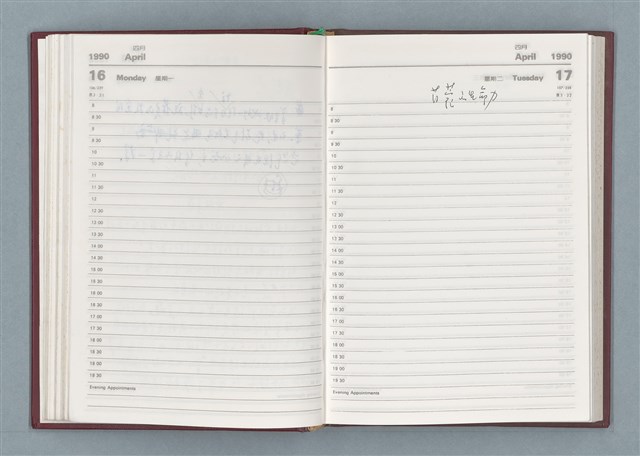 四月
1990 April
16 Monday 星期一
8
8 30
9
9 30
10
10 30
11
11 30
12
12 30
13 00
13 30
14 00
14 30
15 00
15 30
16 00
16 30
17 00
17 30
18 00
18 30
19 00
19 30
Evening Appointments
四月
April 1990
星期二 Tuesday 17
之生命力
8
8 30
9
9 30
10
10 30
11
11 30
12
12 30
13 00
13 30
14 00
14 30
15 00
15 30
16 00
16 30
17 00
17 30
18 00
18 30
19 00
19 30
Evening Appointments